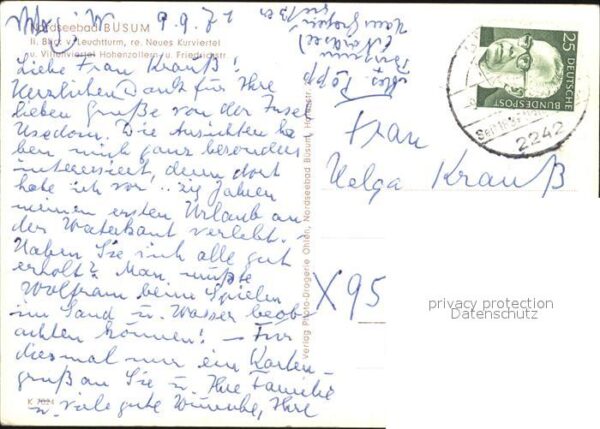 9.9.71
Nordseebad BÜSUM
li. Blick v. Leuchtturm, re. Neues Kurviertel
u. Villenviertel Hohenzollern- u. Friedrichstr.
Liebe Frau Krauß!
Herzlichen Dank für Ihre
lieben Grüße von der Insel
Usedom. Die Ansichten ha
ben mich ganz besonders
interessiert, denn dort
habe ich vor .. 24 Jahren
meinen ersten Urlaub an
der Waterkant verlebt.
Haben Sie sich alle gut
erholt? Man müßte
Wolfram beim Spielen
im Sand u. Wasser beob
achten können! — Für
diesmal nur ein Karten-
gruß an Sie u. Ihre Familie
u. viele gute Wünsche, Ihre
K 7024
Verlag Photo-Drogerie Ohlen, Nordseebad Büsum, Hohlerstr.
Popp
Büsum
(Nordsee)
25
DEUTSCHE
BUNDESPOST
2242
Frau
Helga Krauß
X 95
privacy protection
Datenschutz